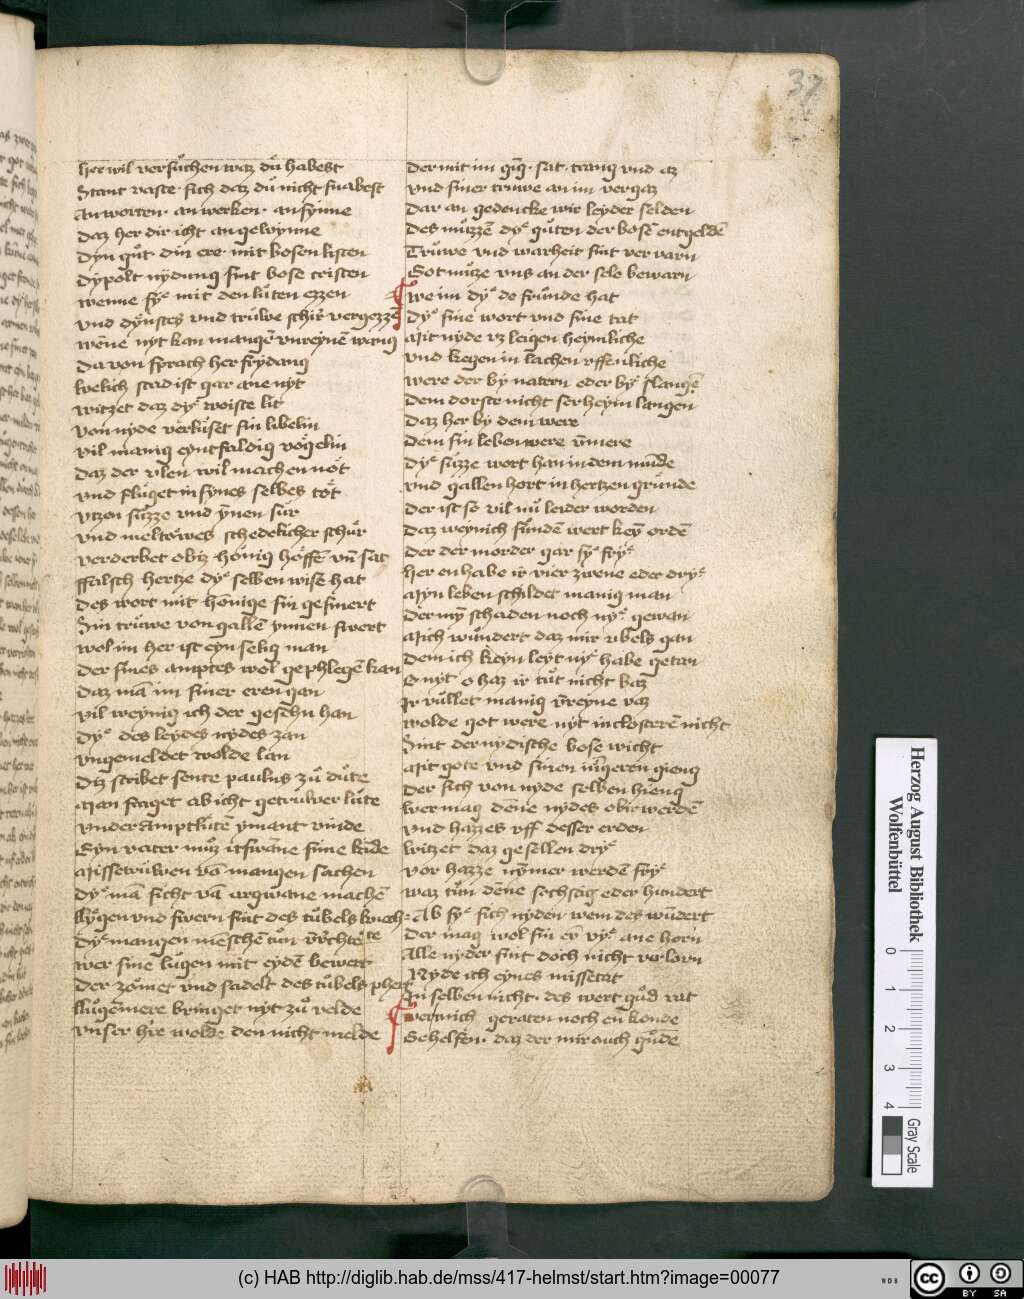 37
her wil versůchen waz dů habest
Stant vaste sich daz dů nicht snabest
An worten · an werken · an synne
Daz her dir icht an gewynne
Dyn gůt · din ere · mit bosen listen
Dypolt nydung sint bose cristen
Wenne sye mit den lůten ezzen
vnd dynstes vnd trůwe schir vergezzē
Wēne nyt kan mangē vnreynē wang
Da von sprach her frydang
Welich stad ist gar ane nyt
Witzet daz dye woiste lit
Von nyde verlůset sin libelin
vil manig eyntfaldig vogelin
Daz der vlen wil machen nőt
vnd flůget in synes selbes tőt
vtzen sůzze vnd ynnen sůr
vnd meltowes schedelicher schůr
verderbet obiz honig hoffē vn̄ sat
ffalsch hertze dye selben wise hat
Des wort mit honige sin gesmert
Sin trůwe von gallē ynnen swert
Wol im her ist eyn selig man
Der sines amptes wol gephlegē kan
Daz mā im siner eren gan
vil weynig ich der gesehn han
Dye des leydes nydes zan
vngemeldet wolde lan
Diz scribet sente paulus zů důte
Man fraget ab icht getruwer lůte
vnder Amptlůtē ymant vinde
Eyn vater můz itswane sime kinde
Missetrůwen vō mangen sachen
Dye mā sicht vā argwane machē
Lůgen vnd swern sint des tůbels knech=
Dye mangen menschē tůn vn̄rchte te
Wer sine lůgen mit eydē bewert
Der zőmet vnd sadelt des tůbels phert
Lůgēmere bringet nyt zů velde
vnser hie wolde den nicht melde
Der mit im gīg · sat · trang vnd az
vnd siner truwe an im vergaz
Dar an gedencke wir leyder selden
Des můzzē dye gůten der bosē entgeldē
Trůwe vnd warheit sint vervarn
Got můze vns an der sele bewarn
Wem dye de frůnde hat
Dye sine wort vnd sine tat
Mit nyde vz leigen heymliche
vnd kegen in lachen vffenliche
Were der by natern eder bye slangē
Dem dorste nicht ser heym langen
Daz her by dem were
Dem sin leben were vn̄mere
Dye sůzze wort han in dem můnde
vnd gallen hort in hertzen grunde
Der ist so vil nů leider worden
Daz weynich sůndē wert key orde
Der der morder gar sye frye
her en habe ir vier zwene eder drye
Myn leben schildet manig man
Der my schaden noch nye gewan
Mich wůndert daz mir vbels gan
Dem ich keyn leyt nye habe getan
O nyt o haz ir tůt nicht baz
Ir vůllet manig vn̄reyne vaz
Wolde got were nyt in closterē nicht
Sint der nydische bose wicht
Mit gote vnd sinen iūgeren gieng
Der sich von nyde selben hieng
Wer mag dēne nydes obir werdē
vnd hazzes vff desser erden
Witzet daz gesellen drye
vor hazze nymer werdē frye
Waz tůn dēne sechszig eder hundert
Ab sye sich nyden wem des wůndert
Der mag wol sin er vye ane horn
Alle nyder sint doch nicht verlorn
Nyde ich eynes missetat
Im selben nicht · des wert gůd rat
Wer mich geraten noch en konde
Gehelfen · daz der mir ouch gůde
Herzog August Bibliothek
Wolfenbüttel
0 1 2 3 4
Gray Scale
(c) HAB http://diglib.hab.de/mss/417-helmst/start.htm?image=00077
WDB
cc BY SA